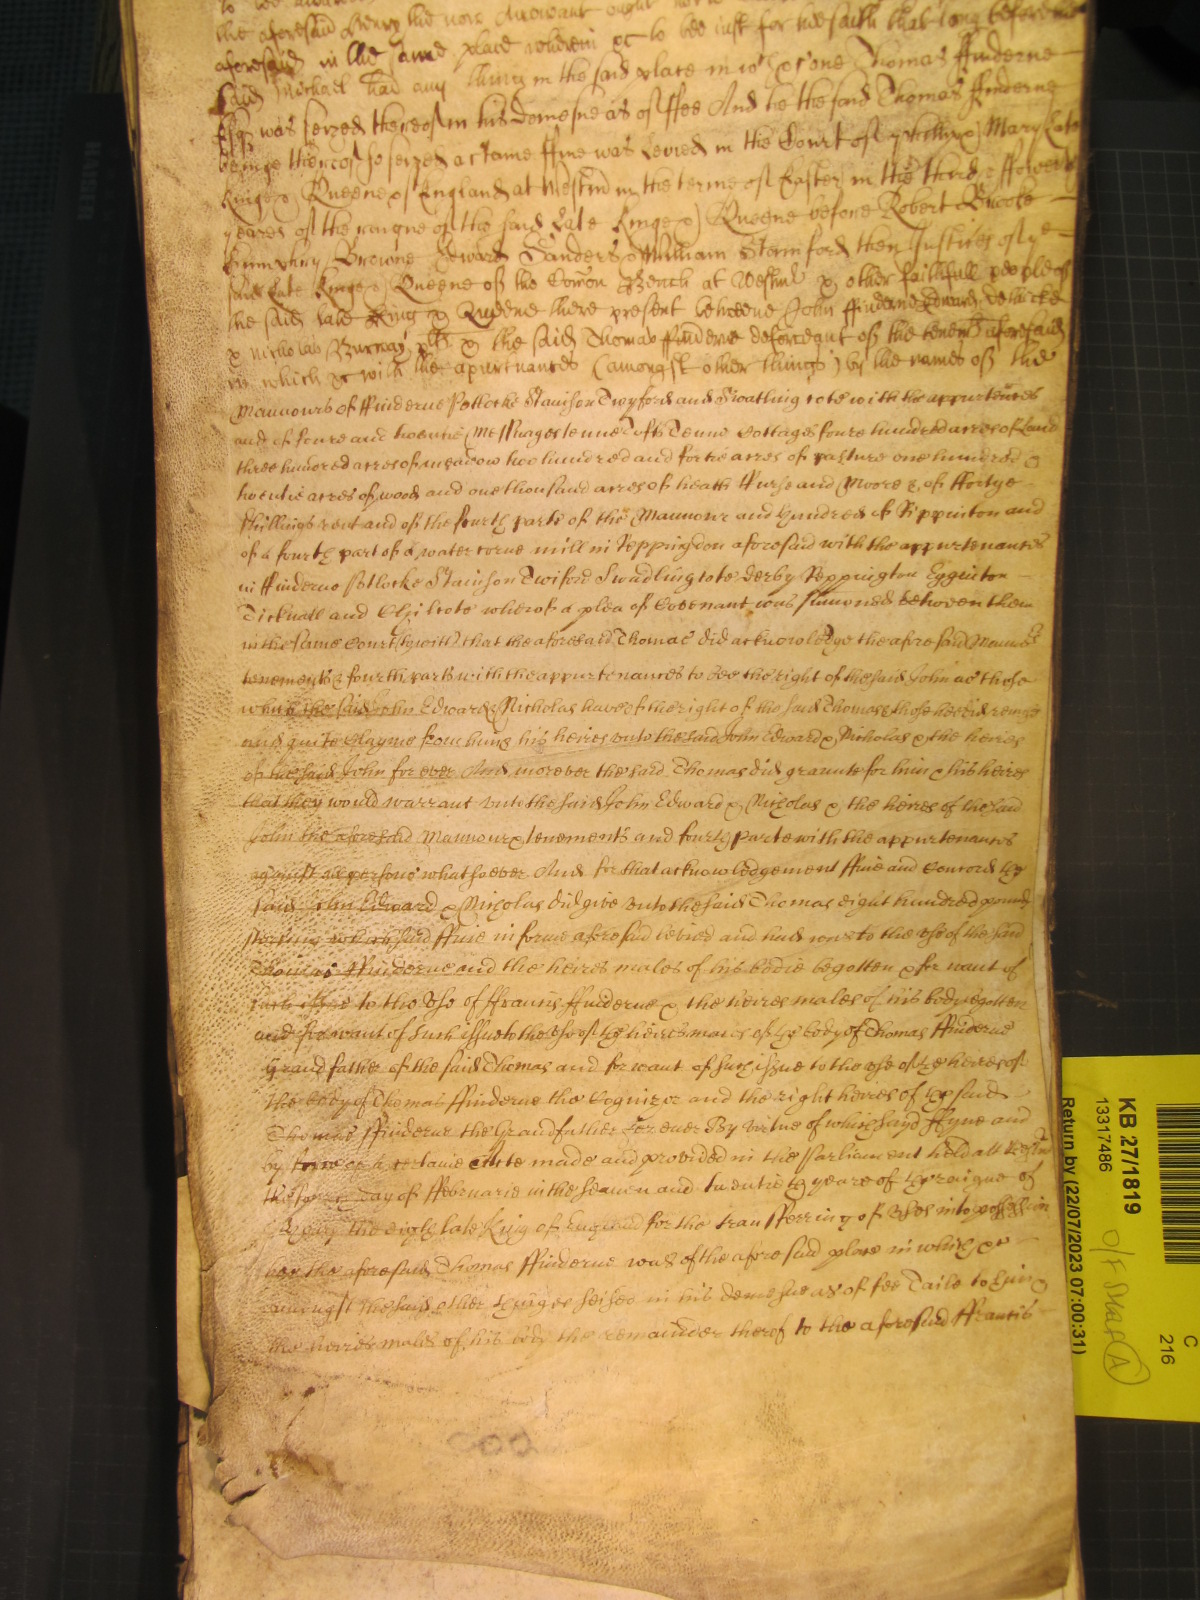 the aforesaid Henry the now Avowant ought
aforesaid in the same place wherein &c to bee iust for hee saith that long before the
said Michael had any thing in the said place in wch &c one Thomas ffinderne
Esqr was seized thereof in his demesne as of ffee And he the said Thomas ffinderne
beinge thereof so seized a certaine ffine was levied in the Court of Phillip & Mary late
Kinge & Queene of England at Westmr in the terme of Easter in the third & fforth
yeares of the raigne of the said late Kinge & Queene before Robert Brooke
Humphry Browne Edward Sanders & William Stamford then Justices of ye
said late Kinge & Queene of the Comon Bench at Westmr & other faithfull people of
the said late King & Queene there present betweene John ffinderne Edward
& Nicholas Burnay plts & the said Thomas ffinderne deforceant of the tenemts aforesaid
in which &c with the apurtnances (amongst other things) by the names of the
Mannours of ffinderne Potlocke Stainson Twyford and Swatlingcote with the appurtenances
and of foure and twentie Messuages tenne Tofts Tenne Cottages foure hundred acres of Land
three hundred acres of meadow two hundred and fortie acres of pasture one hundred &
twentie acres of wood and one thousand acres of heath ffurse and Moore & of ffortye
shillings rent and of the fourth parte of the Mannour and Hundred of Rippinton and
of a fourth part of a water corne mill in Reppingdon aforesaid with the appurtenances
in ffinderne Potlocke Stainson Twiford Swadlingcote Derby Reppington Egginton
Ticknall and wherof a plea of Covenant was sumoned betweene them
in the same Court (to witt) that the aforesaid Thomas did acknowledge the aforesaid Mannors
tenements & fourth parts with the appurtenances to bee the right of the said John as those
which the said John Edward & Nicholas have of the right of the said Thomas & those hee did remise
and quite Clayme from him & his heires unto the said John Edward & Nicholas & the heires
of the said John for ever And moreover the said Thomas did graunte for him & his heires
that they would warrant unto the said John Edward & Nicholas & the heires of the said
John the aforesaid Mannour & tenements and fourth parte with the appurtenances
against all persons whatsoever And for that acknowledgement ffine and Concord the
said John Edward & Nicholas did give unto the said Thomas eight hundred pounds
sterling which said ffine in forme aforesaid levied and had was to the use of the said
Thomas ffinderne and the heires males of his bodie begotten & for want of
such issue to the use of ffrancis ffinderne & the heires males of his body begotten
and for want of such issue to the use of the heires males of the body of Thomas ffinderne
Grandfather of the said Thomas and for want of such issue to the use of the heires of
the body of Thomas ffinderne the Cognizor and the right heires of the said
Thomas ffinderne the Grandfather for ever By virtue of which sayd ffyne and
by force of a certaine Acte made and provided in the Parliament held att Westmr
the fourth day of ffebruarie in the seaven and twentith yeare of the raigne of
Henry the eight late King of England for the transferring of uses into possession
hee the aforesaid Thomas ffinderne was of the aforesaid place in which &c
amongst the said other things seised in his demesne as of fee Taile to him &
the heires males of his body the remainder therof to the aforesaid ffrancis
KB 27/1819
13317486
Return by (22/07/2023 07:00:31)
C
216